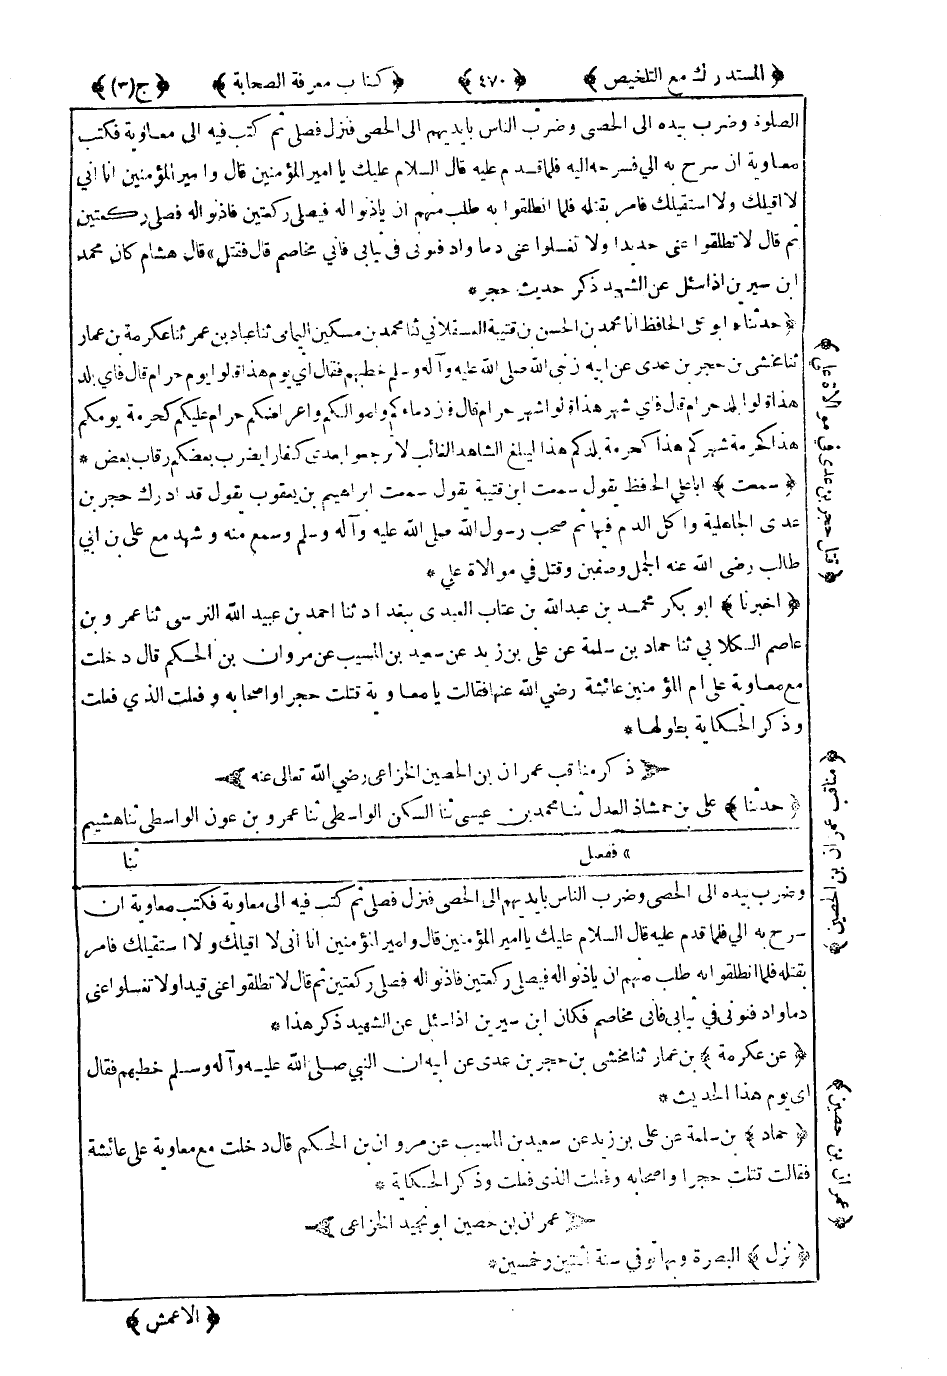 ﴿المستدرك مع التلخيص﴾ ﴿٤٧٠﴾ ﴿كتاب معرفة الصحابة﴾ ﴿ج(٣)﴾
الصلوة وضرب بيده الى الحصى وضرب الناس بايديهم الى الحصى فنزل فصلى ثم كتب فيه الى معاوية فكتب
معاوية ان سرح به الي فسرحه اليه فلما قدم عليه قال السلام عليك يا امير المؤمنين قال وامير المؤمنين انا اني
لا اقيلك ولا استقيلك فامر بقتله فلما انطلقوا به طلب منهم ان ياذنوا له فيصلى ركعتين فاذنوا له فصلى ركعتين
ثم قال لا تطلقوا عنى حديدا ولا تغسلوا عنى دما وادفنونى فى ثيابى فاني مخاصم قال فقتل» قال هشام كان محمد
ابن سيرين اذا سئل عن الشهيد ذكر حديث حجر *
﴿حدثنا﴾ ابو على الحافظ انا محمد بن الحسن بن قتيبة العسقلاني ثنا محمد بن مسكين اليمامى ثنا عباد بن عمر ثنا عكرمة بن عمار
ثنا مخشى بن حجر بن عدى عن ابيه ان نبى الله صلى الله عليه وآله وسلم خطبهم فقال اي يوم هذا قالوا يوم حرام قال فاي بلد
هذا قالوا بلد حرام قال فاي شهر هذا قالوا شهر حرام قال فان دماءكم واموالكم واعراضكم حرام عليكم كحرمة يومكم
هذا كحرمة شهركم هذا كحرمة بلدكم هذا ليبلغ الشاهد الغائب لا ترجعوا بعدى كفارا يضرب بعضكم رقاب بعض *
﴿سمعت﴾ ابا علي الحافظ يقول سمعت ابن قتيبة يقول سمعت ابراهيم بن يعقوب يقول قد ادرك حجر بن
عدى الجاهلية واكل الدم فيها ثم صحب رسول الله صلى الله عليه وآله وسلم وسمع منه وشهد مع على بن ابي
طالب رضى الله عنه الجمل وصفين وقتل في موالاة علي *
﴿اخبرنا﴾ ابو بكر محمد بن عبدالله بن عتاب العبدى ببغداد ثنا احمد بن عبيد الله النرسى ثنا عمرو بن
عاصم الكلابي ثنا حماد بن سلمة عن على بن زيد عن سعيد بن المسيب عن مروان بن الحكم قال دخلت
مع معاوية على ام المؤمنين عائشة رضي الله عنها فقالت يا معاوية قتلت حجرا واصحابه وفعلت الذي فعلت
وذكر الحكاية بطولها *
ذكر مناقب عمران بن الحصين الخزاعى رضي الله تعالى عنه
﴿حدثنا﴾ على بن حمشاذ العدل ثنا محمد بن عيسى ثنا السكن الواسطى ثنا عمرو بن عون الواسطى ثنا هشيم
» ففعل ثنا
وضرب بيده الى الحصى وضرب الناس بايديهم الى الحصى فنزل فصلى ثم كتب فيه الى معاوية فكتب معاوية ان
سرح به الي فلما قدم عليه قال السلام عليك يا امير المؤمنين قال وامير المؤمنين انا انى لا اقيلك ولا استقيلك فامر
بقتله فلما انطلقوا به طلب منهم ان ياذنوا له فيصلى ركعتين فاذنوا له فصلى ركعتين ثم قال لا تطلقوا عنى قيدا ولا تغسلوا عنى
دما وادفنونى في ثيابى فانى مخاصم فكان ابن سيرين اذا سئل عن الشهيد ذكر هذا *
﴿عن عكرمة﴾ بن عمار ثنا مخشى بن حجر بن عدى عن ابيه ان النبي صلى الله عليه وآله وسلم خطبهم فقال
اى يوم هذا الحديث *
﴿حماد﴾ بن سلمة عن على بن زيد عن سعيد بن المسيب عن مروان بن الحكم قال دخلت مع معاوية على عائشة
فقالت قتلت حجرا واصحابه وفعلت الذى فعلت وذكر الحكاية *
عمران بن حصين ابو نجيد الخزاعى
﴿نزل﴾ البصرة وبها توفي سنة اثنتين وخمسين *
﴿الاعمش﴾
﴿قتل حجر بن عدى فى موالاة على﴾
﴿مناقب عمران بن الحصين﴾
﴿عمران بن حصين﴾